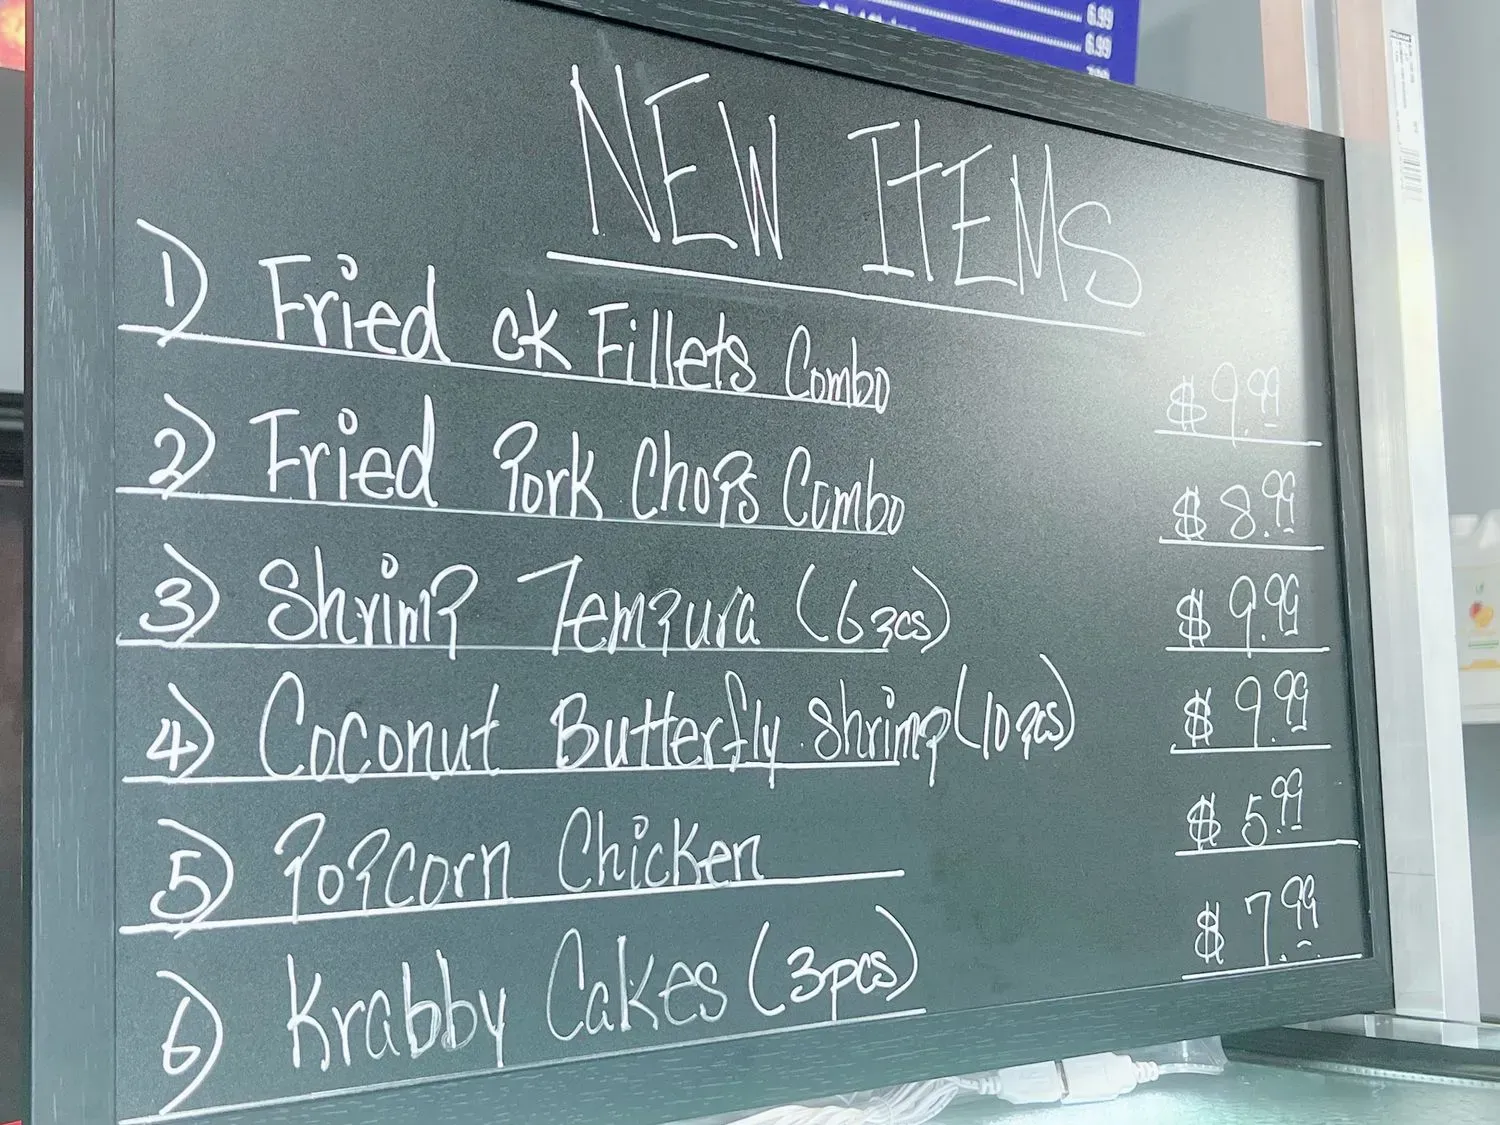 6.99
6.99
NEW ITEMS
1) Fried CK Fillets Combo $ 9.99
2) Fried Pork Chops Combo $ 8.99
3) Shrimp Tempura (6 pcs) $ 9.99
4) Coconut Butterfly Shrimp (10 pcs) $ 9.99
5) Popcorn Chicken $ 5.99
6) Krabby Cakes (3pcs) $ 7.99